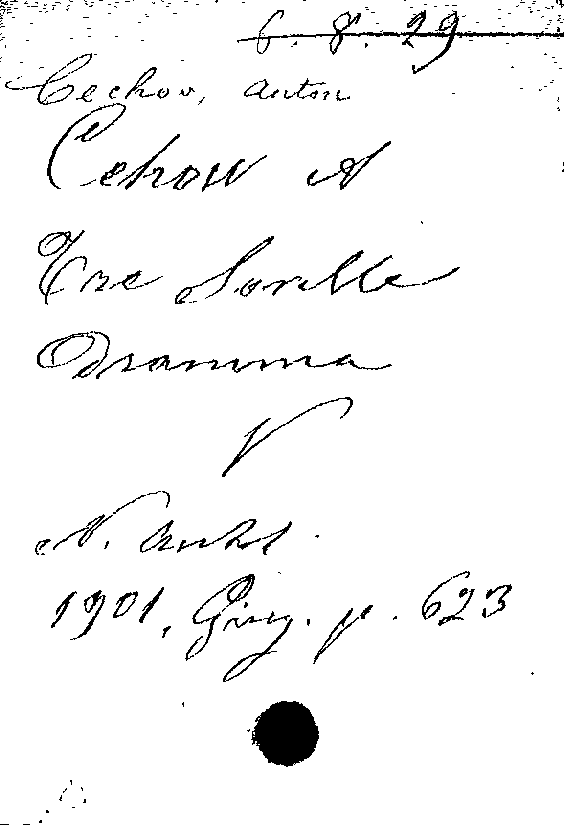 6. 8. 29
Cechov, Anton
Cehow A
Tre Sorelle
Dramma
V
N. Antol.
1901, Giug. p. 623